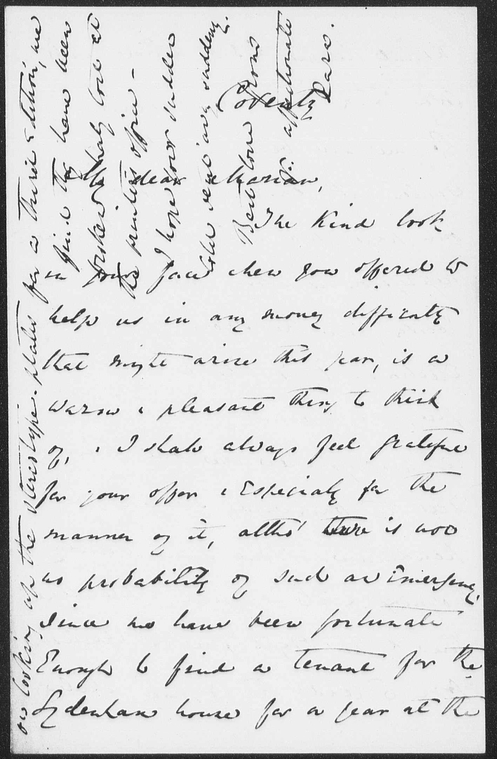 Coventry
My dear Marian,
The kind look
in your face when you offered to
help us in any money difficulty
that might arise this year, is a
warm & pleasant thing to think
of, & I shall always feel grateful
for your offer & especially for the
manner of it, altho' there is now
no probability of such an emergency.
Since we have been fortunate
Enough to find a tenant for the
Sydenham house for a year at the
on looking up the stereotype-plates for a third Edition, we
find they have been
at
the printers office -
I hope your sudden
cold went as suddenly.
Best love from
Yr affectionate
Cara.